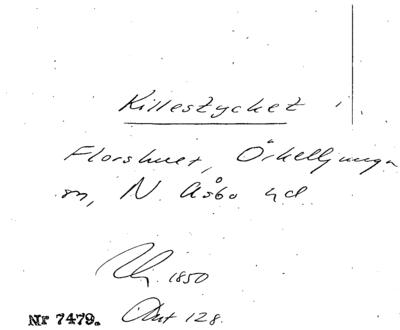 Killestycket
Florshult, Örkelljunga
sn, N. Åsbo hd.
1850
Nr 7479. Akt 128.